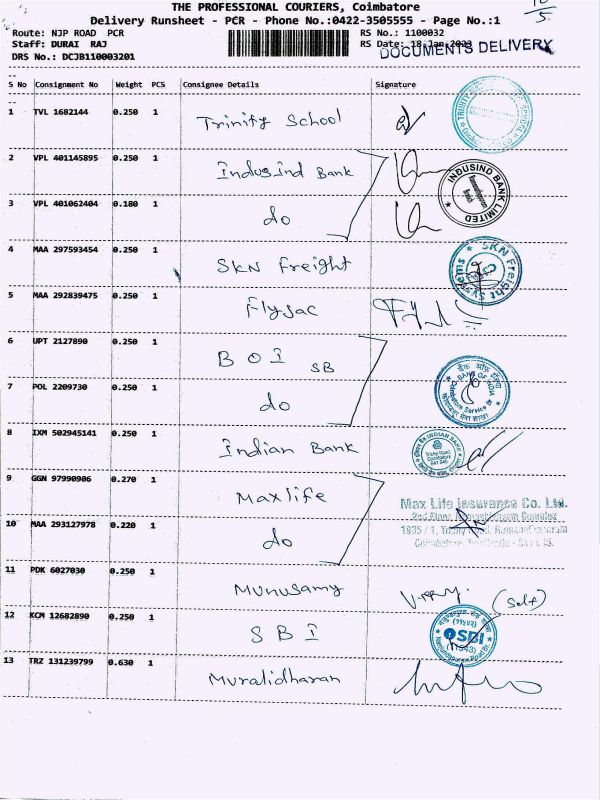 THE PROFESSIONAL COURIERS, Coimbatore
Delivery Runsheet - PCR - Phone No.:0422-3505555 - Page No.:1
10/5
Route: NJP ROAD PCR
RS No.: 1100032
Staff: DURAI RAJ
RS Date: 18 Jan
DOCUMENTS DELIVERY
DRS No.: DCJB110003201
S No Consignment No Weight PCS Consignee Details Signature
1 TVL 1682144 0.250 1 Trinity School
2 VPL 401145895 0.250 1 Indusind Bank
INDUSIND BANK LIMITED
3 VPL 401062404 0.180 1 do
4 MAA 297593454 0.250 1 SKN Freight
SKN Freight Systems
5 MAA 292839475 0.250 1 Flyjac
6 UPT 2127890 0.250 1 BOI SB
7 POL 2209730 0.250 1 do
BANK OF INDIA
Coimbatore Service Br
8 IXM 502945141 0.250 1 Indian Bank
INDIAN BANK
Trichy Road
Coimbatore
641 045
9 GGN 97990906 0.270 1 Maxlife
Max Life Insurance Co. Ltd.
10 MAA 293127978 0.220 1 do
11 PDK 6027030 0.250 1 Munusamy
(Self)
12 KCM 12682890 0.250 1 SBI
SBI
(11943)
13 TRZ 131239799 0.630 1 Muralidharan